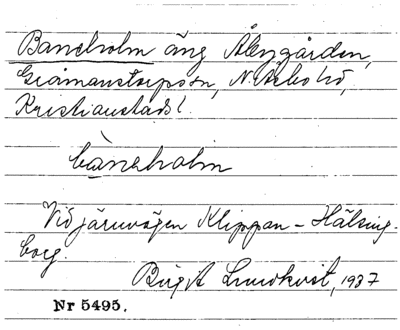 Baneholm äng Åbygården,
Gråmanstorps sn, N. Åsbo hd,
Kristianstads l.
bàneholm
Vid järnvägen Klippan - Hälsing-
borg.
Birgit Lundkvist, 1937
Nr 5495.